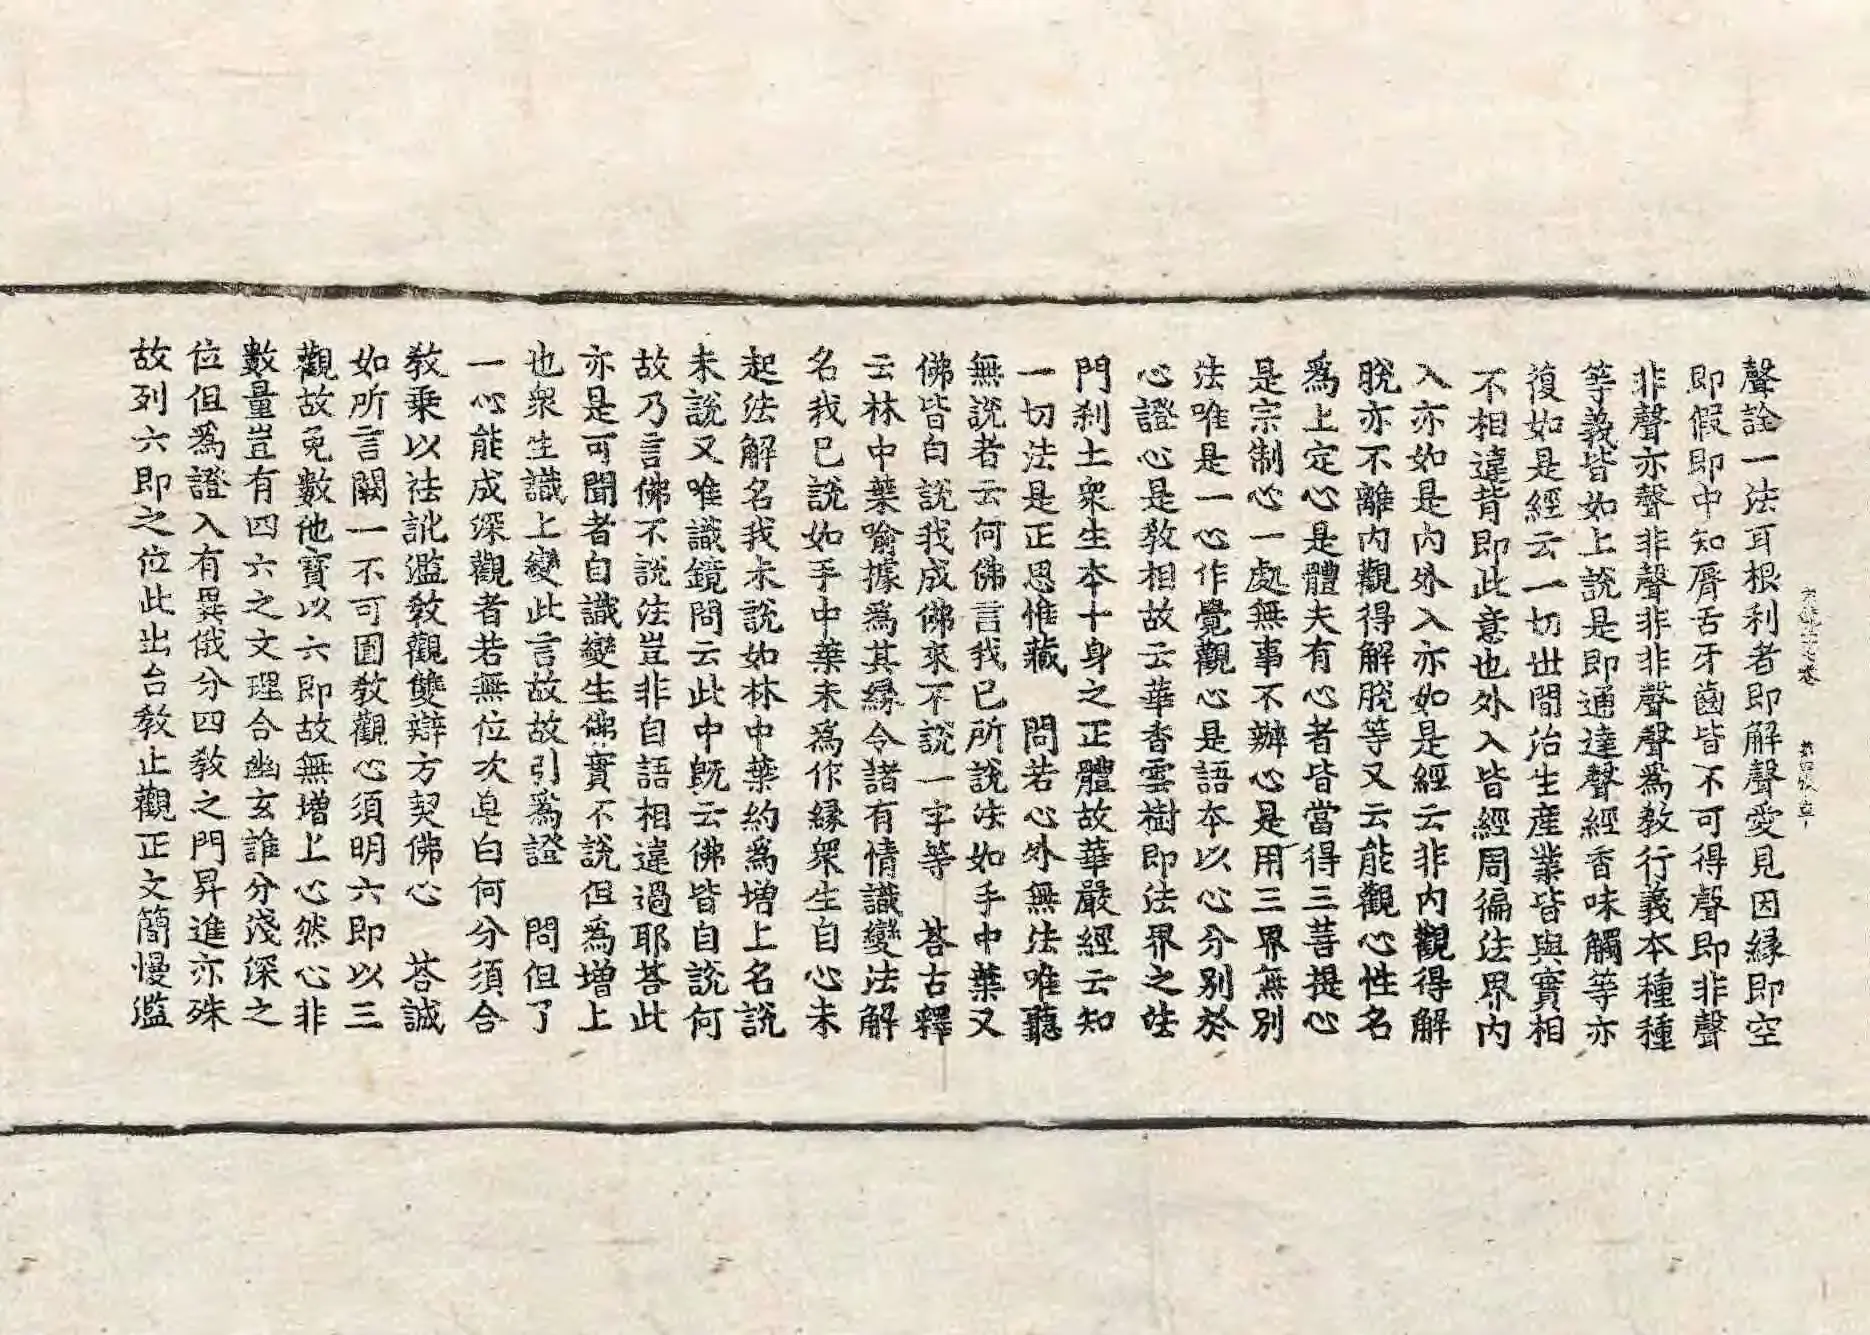 聲詮一法耳根利者即解聲愛見因緣即空
即假即中知脣舌牙齒皆不可得聲即非聲
非聲亦聲非聲非非聲聲爲教行義本種種
等義皆如上說是即通達聲經香味觸等亦
復如是經云一切世間治生産業皆與實相
不相違背即此意也外入皆經周徧法界內
入亦如是內外入亦如是經云非內觀得解
脫亦不離內觀得解脫等又云能觀心性名
爲上定心是體夫有心者皆當得三菩提心
是宗制心一處無事不辦心是用三界無別
法唯是一心作覺觀心是語本以心分別於
心證心是教相故云華香雲樹即法界之法
門刹土衆生本十身之正體故華嚴經云知
一切法是正思惟藏 問若心外無法唯聽
無說者云何佛言我已所說法如手中葉又
佛皆自說我成佛來不說一字等 荅古釋
云林中葉喻據爲其緣令諸有情識變法解
名我已說如手中葉未爲作緣衆生自心未
起法解名我未說如林中葉約爲增上名說
未說又唯識鏡問云此中旣云佛皆自說何
故乃言佛不說法豈非自語相違過耶荅此
亦是可聞者自識變生佛實不說但爲增上
也衆生識上變此言故故引爲證 問但了
一心能成深觀者若無位次皂白何分須合
教乘以祛訛濫教觀雙辯方契佛心 荅誠
如所言闕一不可圓教觀心須明六即以三
觀故免數他寶以六即故無增上心然心非
數量豈有四六之文理合幽玄誰分淺深之
位但爲證入有異俄分四教之門昇進亦殊
故列六即之位此出台教止觀正文簡慢濫